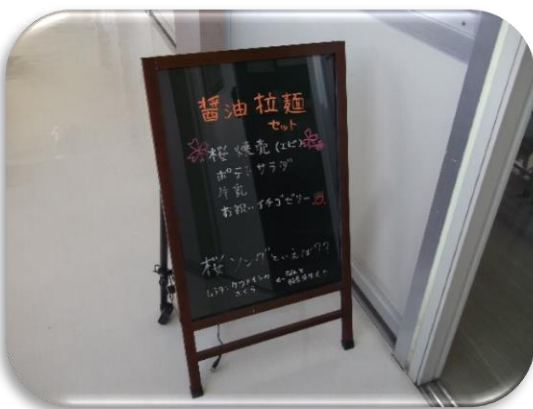 醤油拉麺
セット
桜焼売(エビ)
ポテトサラダ
牛乳
お祝いイチゴゼリー
桜ソングといえば??
さくら